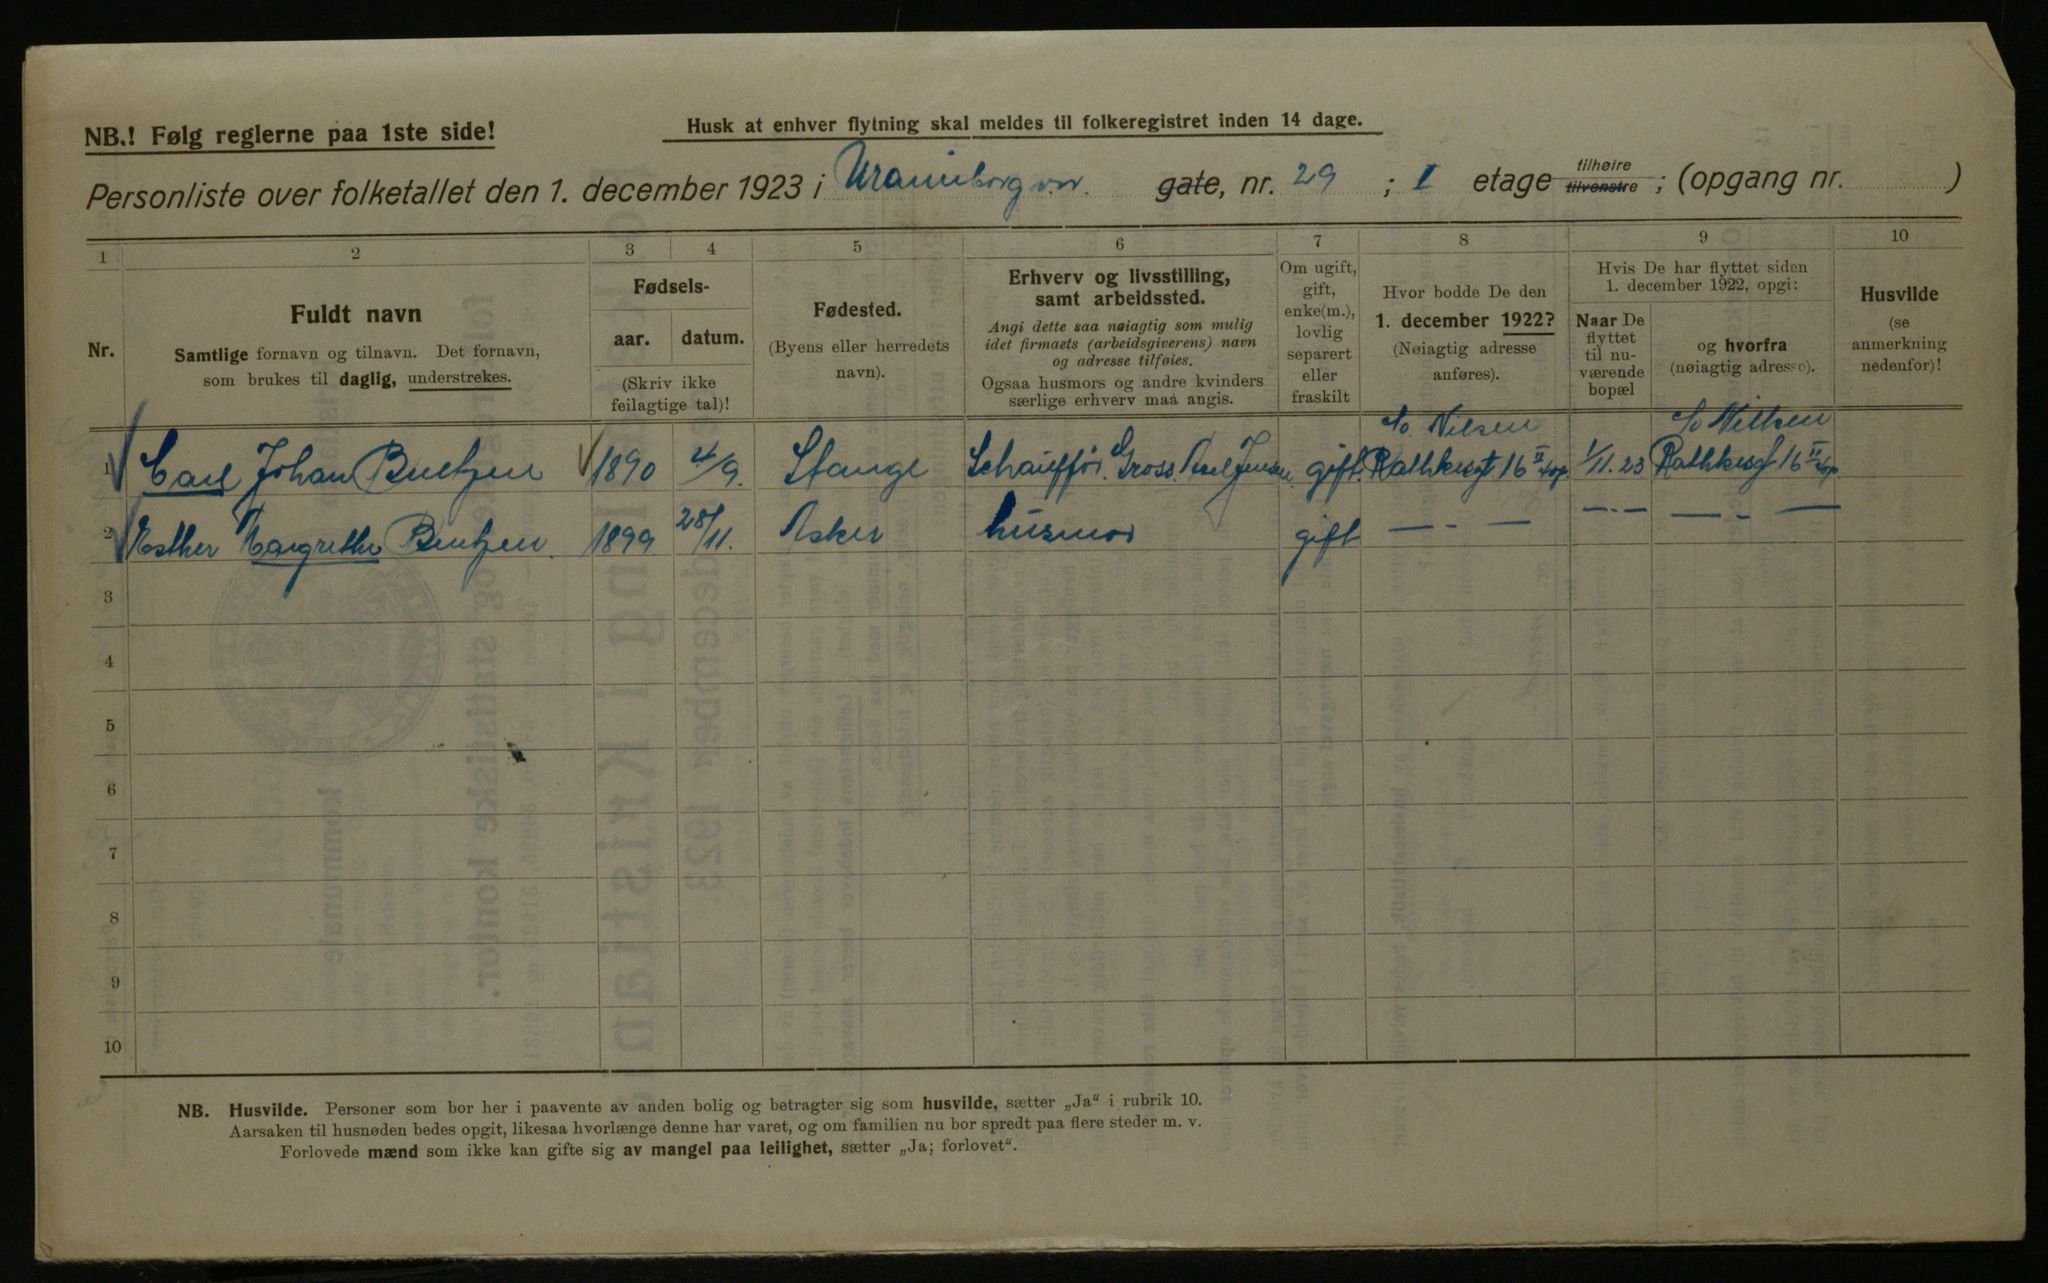 NB.! Følg reglerne paa 1ste side!
Husk at enhver flytning skal meldes til folkeregistret inden 14 dage.
Personliste over folketallet den 1. december 1923 i Uranienborgvei. gate, nr. 29 ; I etage tilhøire tilvenstre ; (opgang nr. )
1 2 3 4 5 6 7 8 9 10
Nr.
Fuldt navn
Samtlige fornavn og tilnavn. Det fornavn,
som brukes til daglig, understrekes.
Fødsels-
aar. datum.
(Skriv ikke
feilagtige tal)!
Fødested.
(Byens eller herredets
navn).
Erhverv og livsstilling,
samt arbeidssted.
Angi dette saa nøiagtig som mulig
idet firmaets (arbeidsgiverens) navn
og adresse tilføies.
Ogsaa husmors og andre kvinders
særlige erhverv maa angis.
Om ugift,
gift,
enke(m.),
lovlig
separert
eller
fraskilt
Hvor bodde De den
1. december 1922?
(Nøiagtig adresse
anføres).
Hvis De har flyttet siden
1. december 1922, opgi:
Naar De
flyttet
til nu-
værende
bopæl
og hvorfra
(nøiagtig adresse).
Husvilde
(se
anmerkning
nedenfor)!
c/o Nilsen c/o Nilsen
1 Carl Johan Bentzen 1890 4/9. Stange Schauffør. Gross. Axel Jensen gift Rathkesgt 16 II 1/11. 23 Rathkesgt 16 II
2 Esther Margrethe Bentzen. 1899 28/11. Asker husmor gift — - — — - — — - —
3
4
5
6
7
8
9
10
NB. Husvilde. Personer som bor her i paavente av anden bolig og betragter sig som husvilde, sætter „Ja“ i rubrik 10.
Aarsaken til husnøden bedes opgit, likesaa hvorlænge denne har varet, og om familien nu bor spredt paa flere steder m. v.
Forlovede mænd som ikke kan gifte sig av mangel paa leilighet, sætter „Ja; forlovet“.